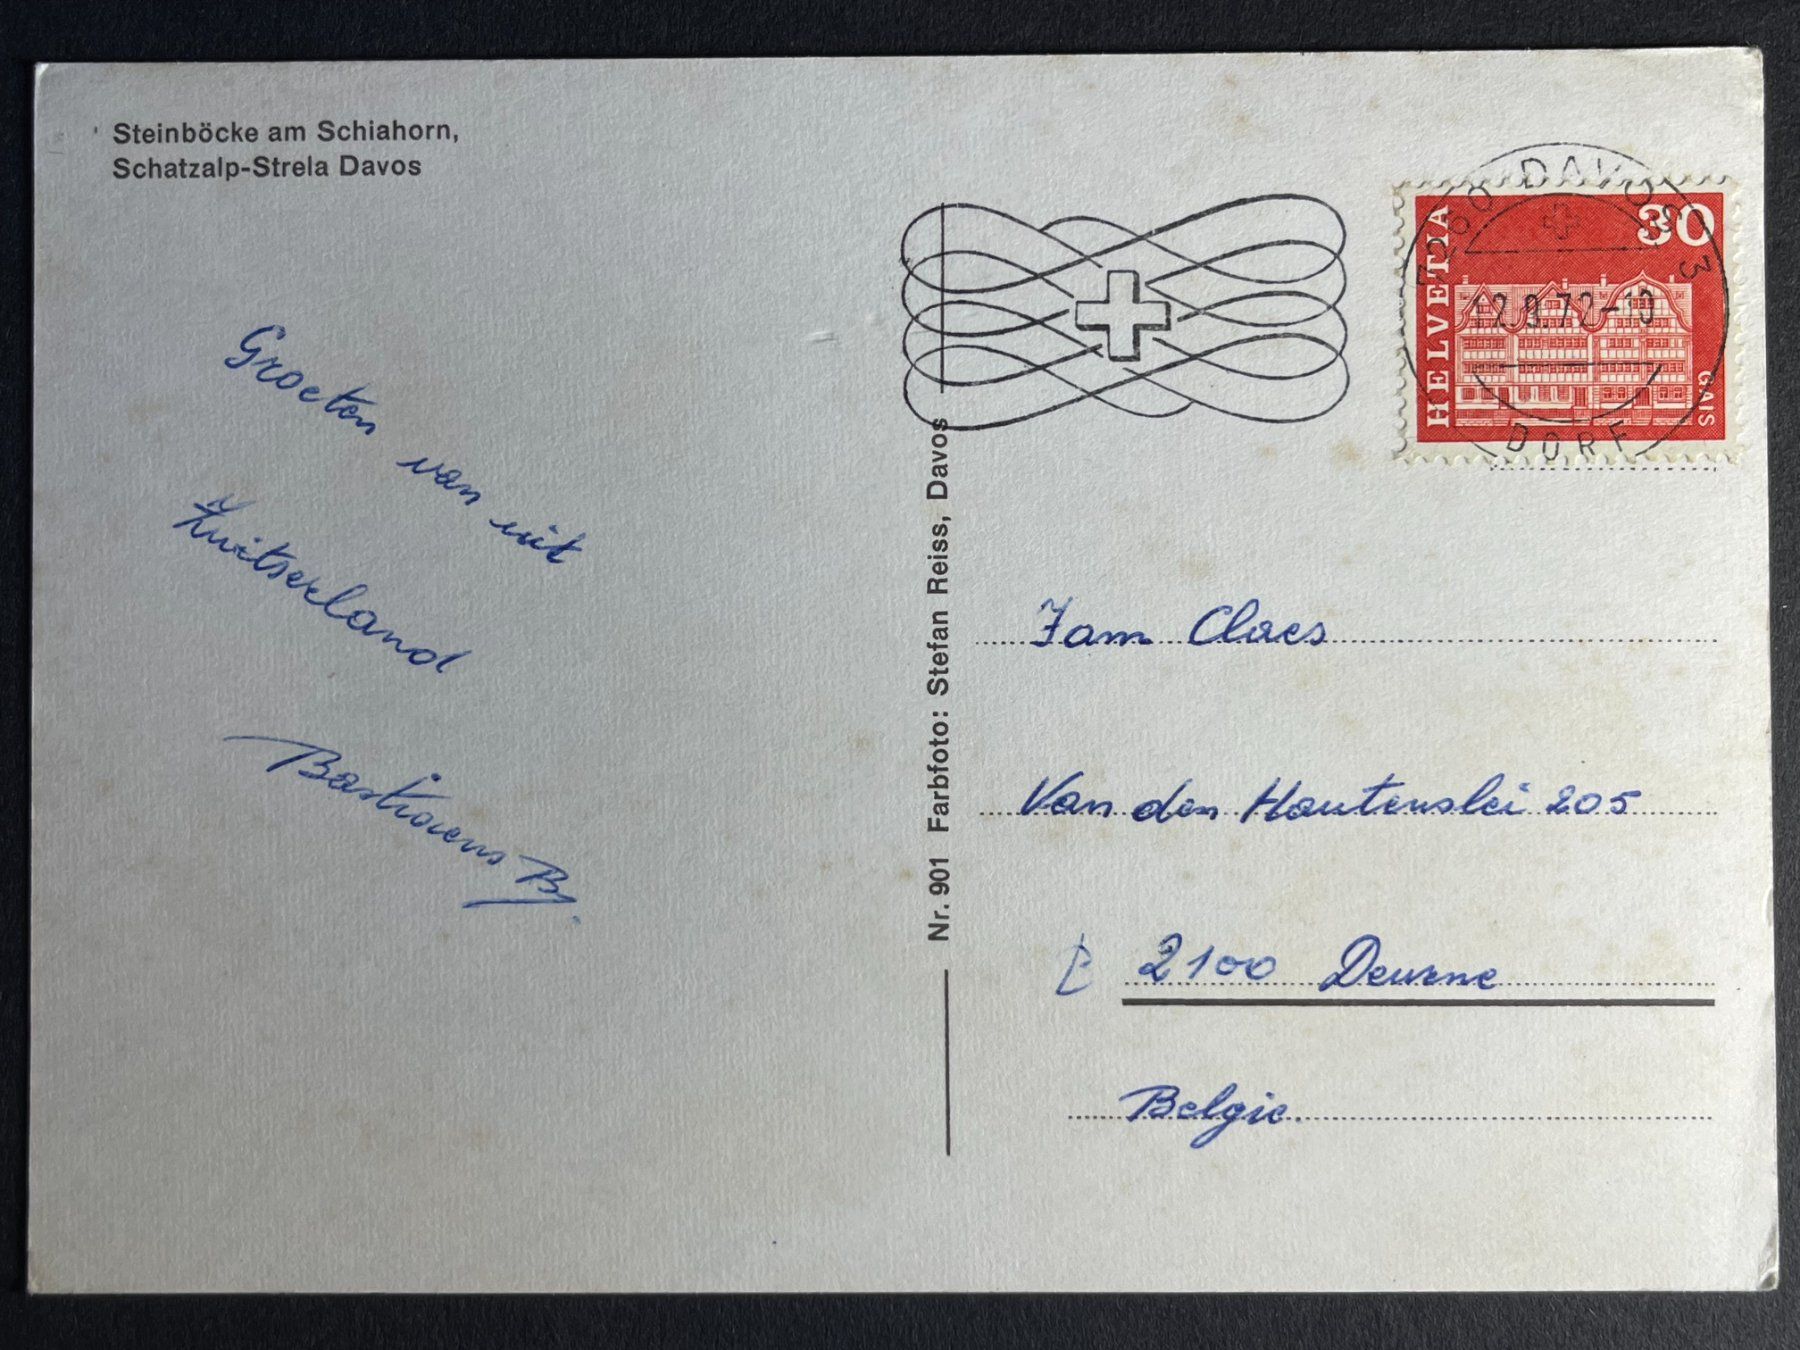 Steinböcke am Schiahorn,
Schatzalp-Strela Davos
Groeten van uit
Zwitserland
Bastiaens B.
Nr. 901 Farbfoto: Stefan Reiss, Davos
7260 DAVOS 3
12.9.72-10
DORF
HELVETIA
30
GAIS
Fam Claes
Van den Hautenslei 205
2100 Deurne
Belgie.